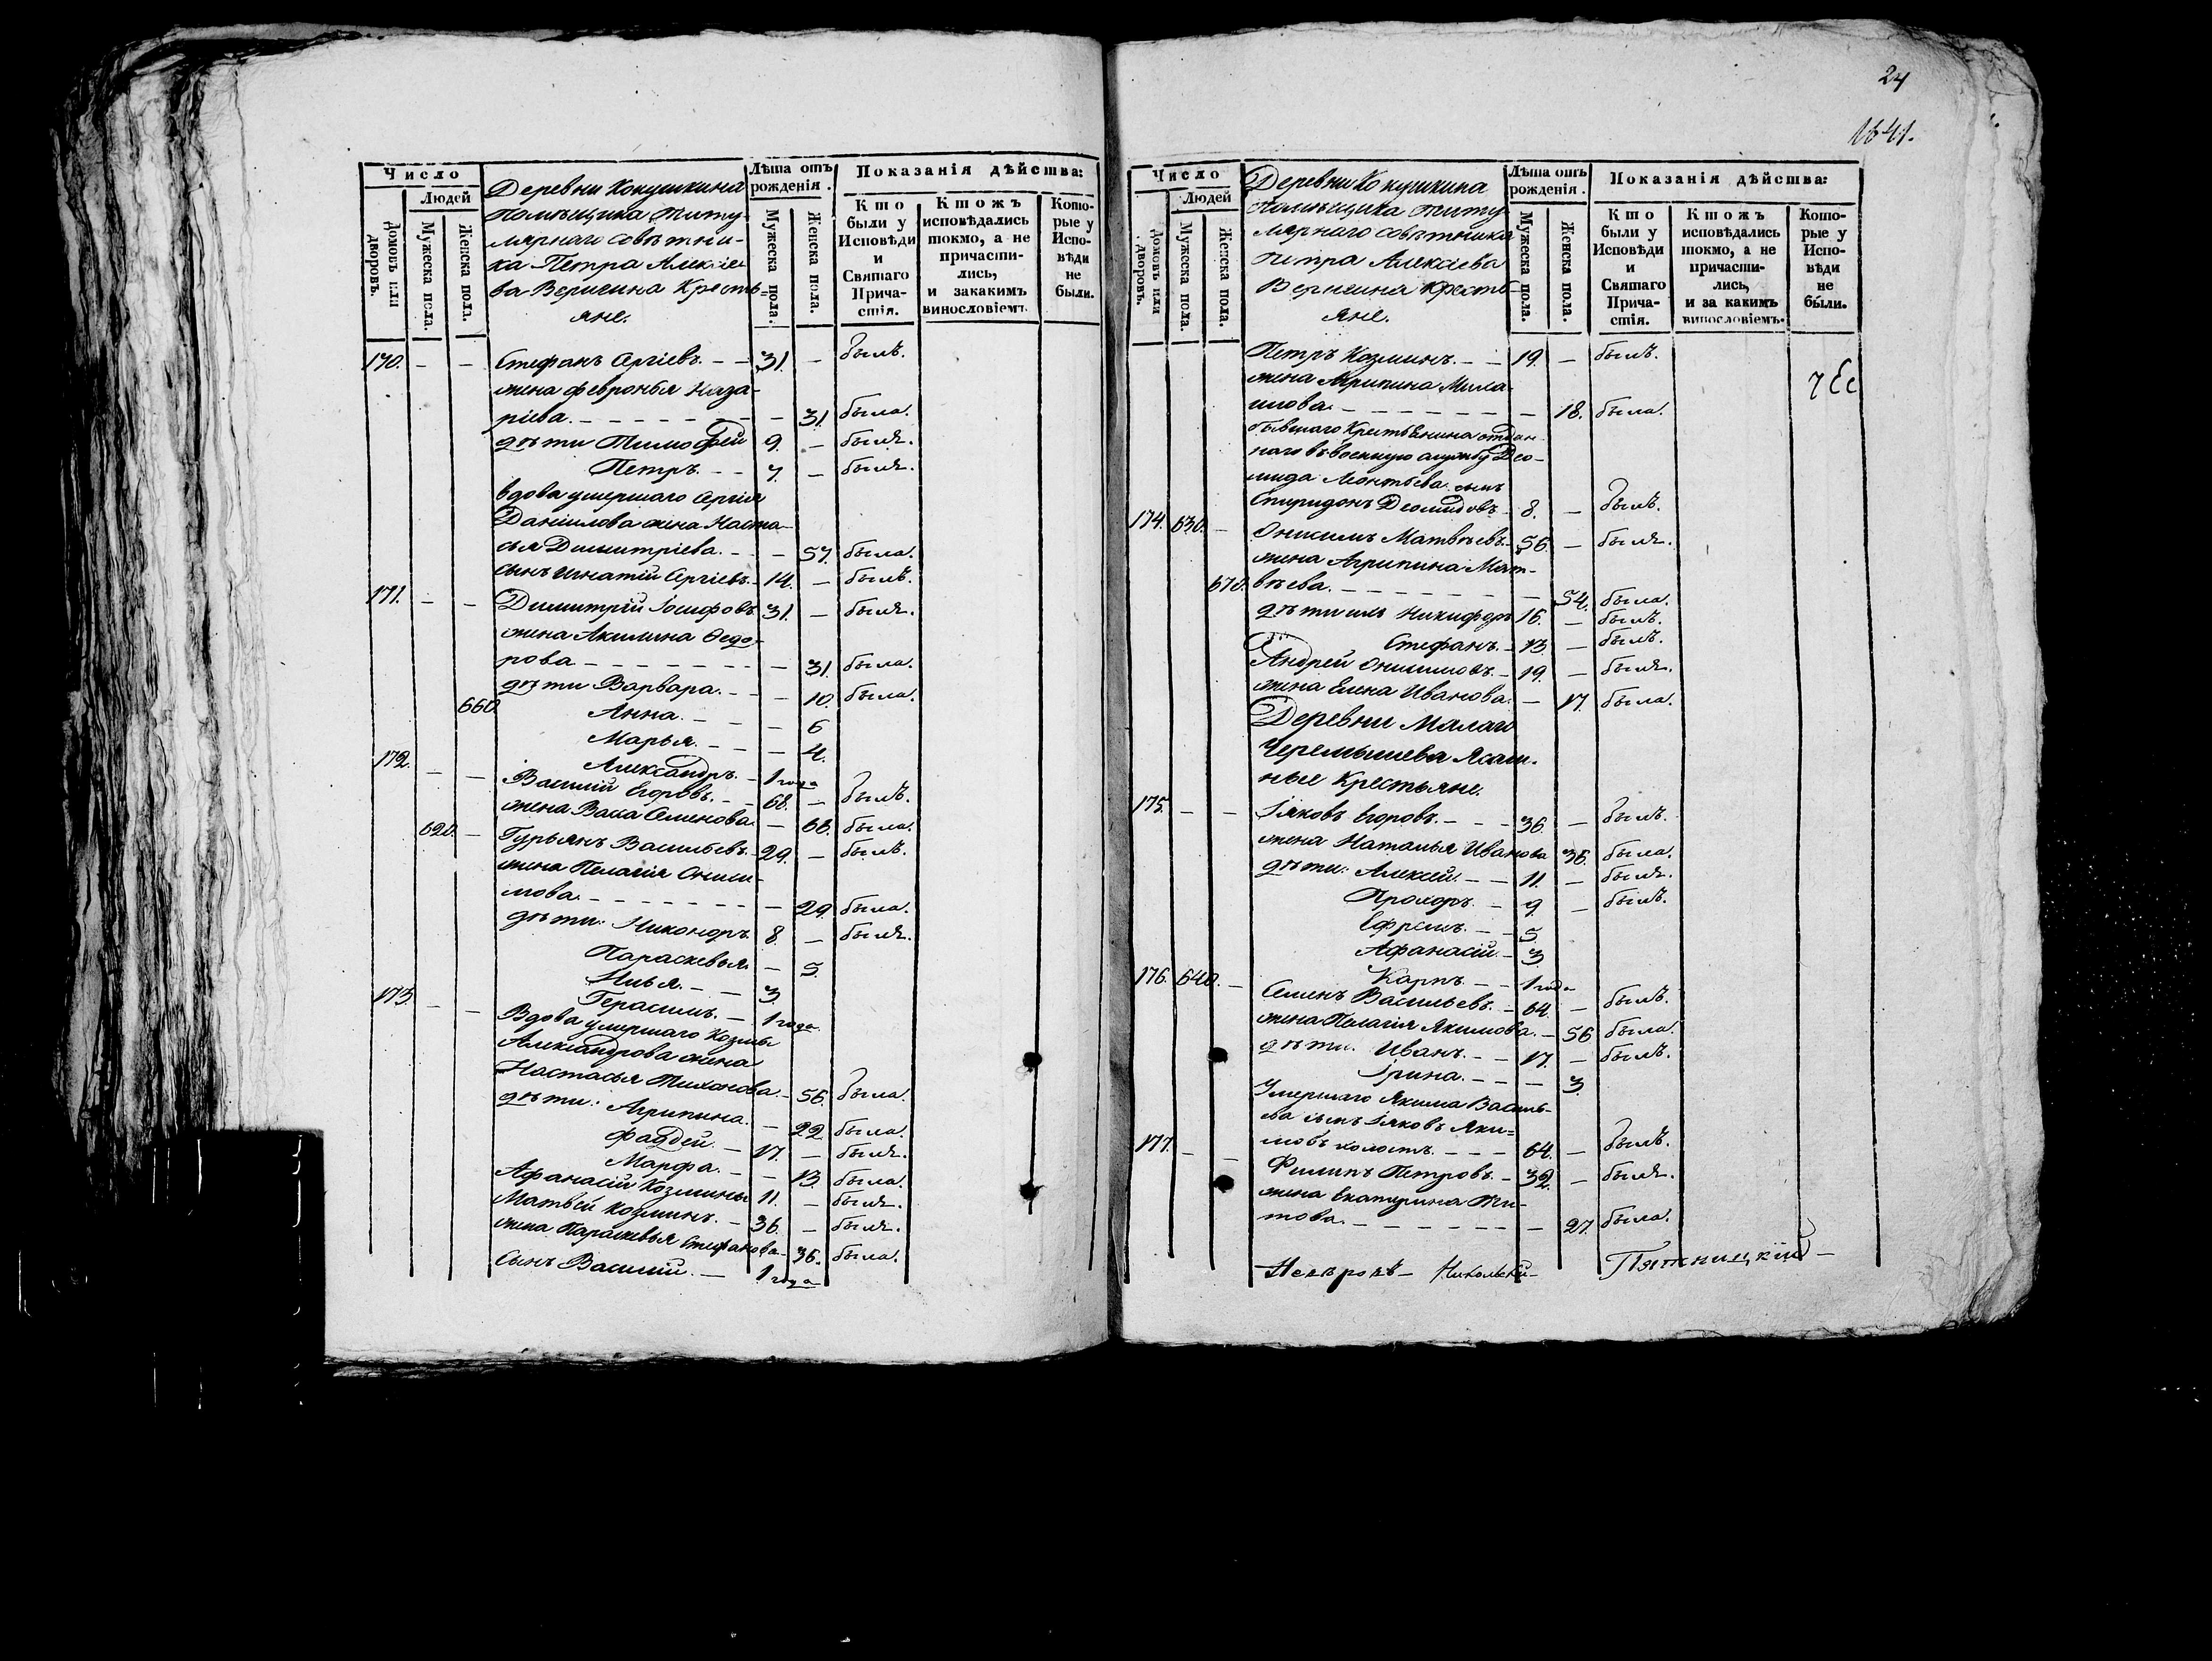 24
1641.
Число
Людей
Домовъ или дворовъ.
Мужеска пола.
Женска пола.
Деревни Кокушкина
Помѣщика титу-
лярнаго совѣтни-
ка Петра Алексіе
ва Веригина Кресть=
яне.
Лѣта отъ рожденія.
Мужеска пола.
Женска пола.
Показанія дѣйства:
Кто были у Исповѣди и Святаго Прича-стія.
Ктожъ исповѣдались токмо, а не причасти-лись, и закакимъ винословіемъ.
Кото-рые у Испо-вѣди не были.
170. – – Стефанъ Сергіевъ. – – 31. – былъ.
жена Февронья Наза-
ріева. – – 31. была.
дѣти Тимофей 9. – былъ.
Петръ. – – 7. – былъ.
вдова умершаго Сергія
Даниилова жена Наста-
сья Димитріева. – – 57. была.
сынъ Игнатій Сергіевъ. – 14. – былъ.
171. – – Димитрій Іосифовъ 31. – былъ.
жена Акилина Ѳедо-
рова – – 31. была.
дѣти Варвара. – – 10. была.
660. Анна. – – – 6
Марья. – – – 4.
Александръ. – 1 года
172. – – Василий Егоровъ. – – 68. – былъ.
жена Васа Семенова. – 68. была.
620. – Гурьянъ Васильевъ. 29. – былъ.
жена Пелагія Ониси-
мова. – – 29. была.
дѣти: Никоноръ. 8. – былъ.
Параскевья. – 5.
Илья. – – 3.
Герасимъ. – 1 года.
173. – – Вдова умершаго Козмы
Александрова жена
Настасья Тихонова. – 56. была.
дѣти: Агрипина. – 22. была.
Фаддей. – 17. – былъ.
Марфа. – – 13. была.
Афанасій Козмины 11. – былъ.
Матвѣй Козминъ. – 36. – былъ.
жена Параскевья Стефанова – 36. была.
Сынъ Василий. – 1 года
Число
Людей
Домовъ или дворовъ.
Мужеска пола.
Женска пола.
Деревни Кокушкина
Помѣщика титу-
лярнаго совѣтника
Петра Алексіева
Веригина Кресть
яне.
Лѣта отъ рожденія.
Мужеска пола.
Женска пола.
Показанія дѣйства:
Кто были у Исповѣди и Святаго Прича-стія.
Ктожъ исповѣдались токмо, а не причасти-лись, и за какимъ винословіемъ.
Кото-рые у Испо-вѣди не были.
Петръ Козминъ. – – 19. – былъ.
жена Агрипина Мила-
нова. – – 18. была.
бывшаго Крестьянина отдан-
наго въ военную службу Део-
мида Леонтьева сынъ
Спиридонъ Деомидовъ – 8. – былъ.
174. 630. – Онисимъ Матвѣевъ. 56. – былъ.
жена Агрипина Мат-
670. вѣева. – – 54. была.
дѣти ихъ Никифоръ 16. – былъ.
Стефанъ. – 13. – былъ.
Андрей Онисимовъ. – 19. – былъ.
жена Елена Иванова. – 17. была.
Деревни Малаго
Черемышева Ясаш-
ные Крестьяне.
175. – – Іяковъ Егоровъ. – – – 36. – былъ.
жена Наталья Иванова 36. была.
дѣти: Алексѣй. – – 11. – былъ.
Прохоръ. – 9. – былъ.
Ефремъ. – – 5.
Афанасій. – 3.
Карпъ. – – 1 года
176. 640. – Семенъ Васильевъ. – 64. – былъ.
жена Пелагія Якимова. – 56 была.
дѣти. Иванъ. – – 17. – былъ.
Ірина. – – – 3.
Умершаго Якима Василь-
ева сынъ Іяковъ Яки=
мовъ холостъ. – – – 64. – былъ.
177. – – Филипъ Петровъ. – 32. – былъ.
жена Екатерина Ти-
това. – – 27. была.
Пятницкій –